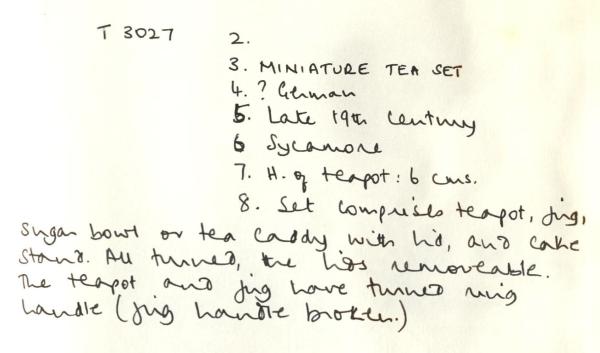 T 3027
2.
3. MINIATURE TEA SET
4. ? German
5. Late 19th century
6 Sycamore
7. H. of teapot: 6 cms.
8. Set comprises teapot, jug,
sugar bowl or tea caddy with lid, and cake
stand. All turned, the lids removeable.
The teapot and jug have turned ring
handle (jug handle broken.)